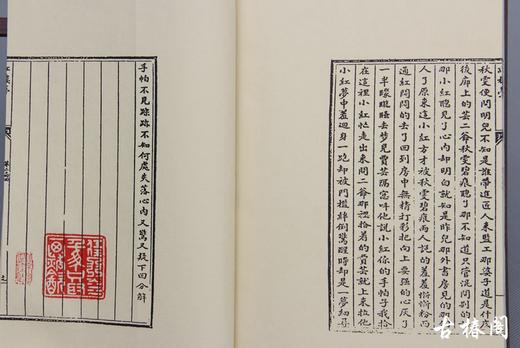 秋雯便問明兒不知是誰帶進匠人來監工那婆子道是什庅
後廊上的芸二爺秋雯碧痕聽了那不知道只管混問别的
那小紅聽見了心內却明白就知是昨兒那外書房見的那
人了原來這小紅方才被秋雯碧痕兩人說的羞羞慚慚粉面
通紅悶悶的去了回到房中無精打彩把向上要强的心灰了
一半朦朧睡去夢見賈芸隔窓叫他說小紅你的手帕子我拾
在這裡小紅忙走出來問二爺那裡拾着的賈芸就上來拉他
小紅夢中羞廻身一跑却被門檻絆倒驚醒時却是一夢細尋
手帕不見踪跡不知何處失落心內又驚又疑下回分解
古椿閣